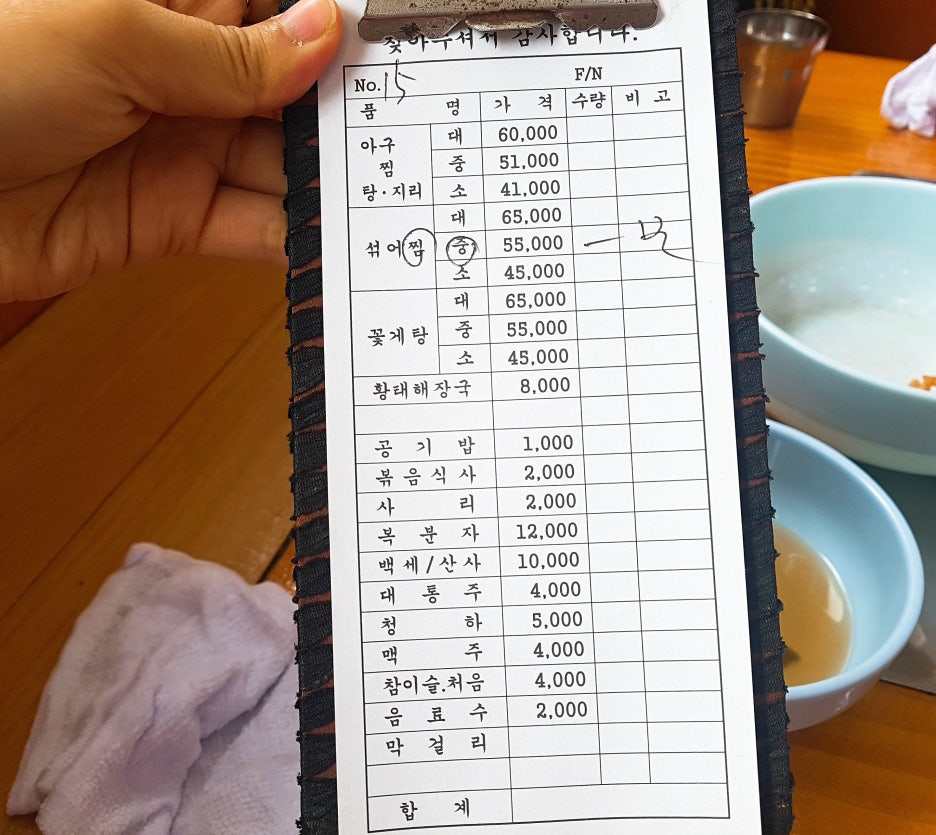 찾아주셔서 감사합니다.
No. 15 F/N
품 명 가 격 수량 비 고
아구찜 탕·지리 대 60,000
중 51,000
소 41,000
섞어찜 대 65,000
중 55,000 一
소 45,000
꽃게탕 대 65,000
중 55,000
소 45,000
황태해장국 8,000
공 기 밥 1,000
볶음식사 2,000
사 리 2,000
복 분 자 12,000
백세/산사 10,000
대 통 주 4,000
청 하 5,000
맥 주 4,000
참이슬.처음 4,000
음 료 수 2,000
막 걸 리
합 계